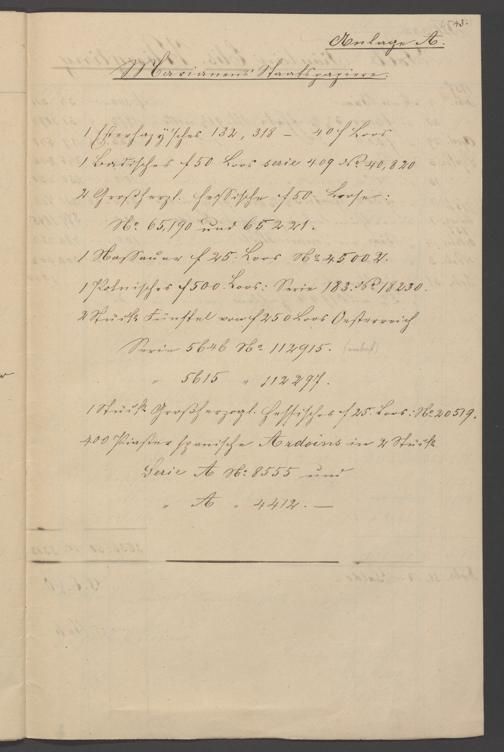 Anlage A.
Marianens Staatspapiere.
1 Esterhazy'sches 132,318 — 40 f Loos
1 Badisches f 50 Loos Serie 409 No 40,820
2 Großherzl. Hessische f 50. Loose:
No. 65,190 und 65221.
1 Nassauer f 25. Loos No. 4500 2.
1 Polnisches f 500. Loos: Serie 183. No 18230.
2 Stück Fünftel von f 250 Loos Oesterreich
Serie 5646 No. 112915.
" 5615 " 112297.
1 Stück Großherzogl. Hessisches f 25. Loos: No. 20519.
400 Piaster spanische Ardoins in 2 Stück
Serie A No. 8555 und
" A " 4412. —